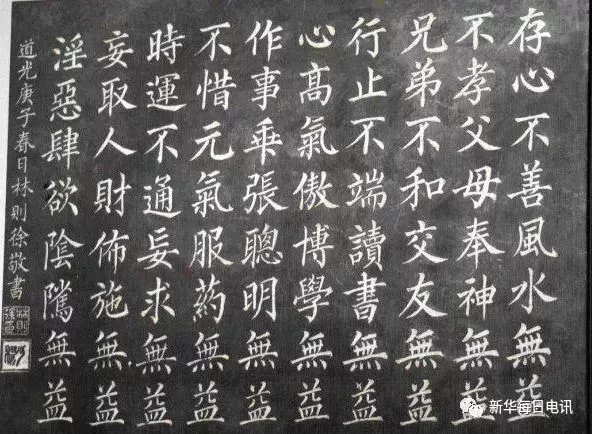 存心不善風水無益
不孝父母奉神無益
兄弟不和交友無益
行止不端讀書無益
心髙氣傲博學無益
作事乖張聰明無益
不惜元氣服葯無益
時運不通妄求無益
妄取人財佈施無益
淫惡肆欲陰騭無益
道光庚子春日林則徐敬書
新华每日电讯